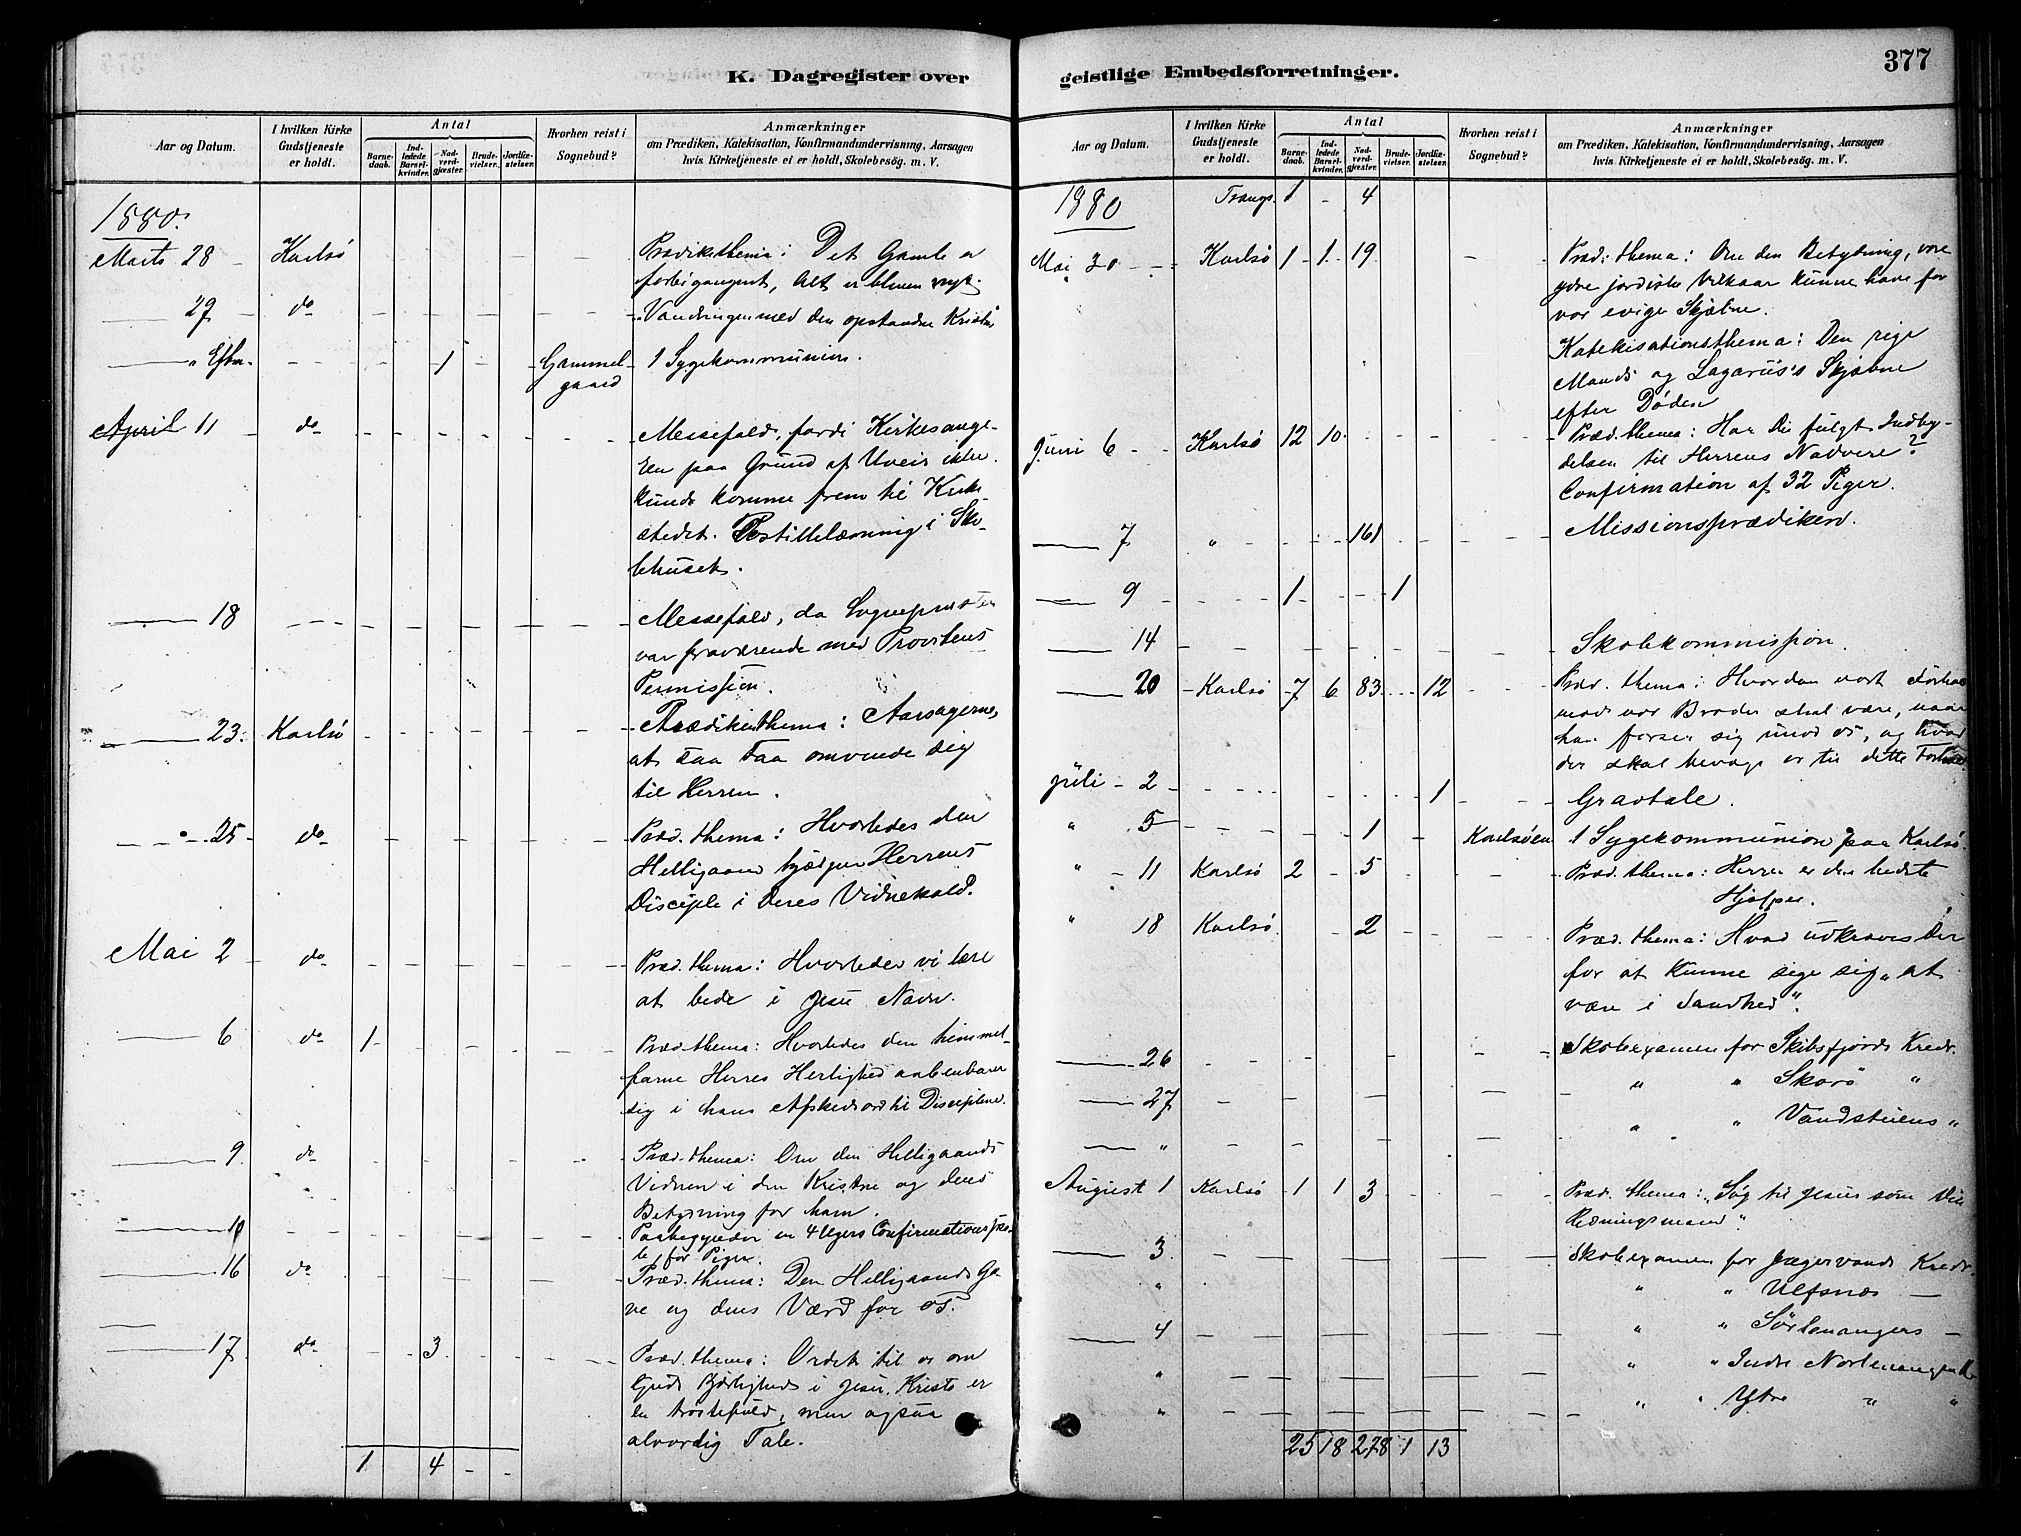 K. Dagregister over
geistlige Embedsforretninger.
377
Aar og Datum.
I hvilken Kirke Gudstjeneste er holdt.
Antal
Barnedaab.
Indledede Barselkvinder.
Nadverdgjæster.
Brudevielser.
Jordfæstelser.
Hvorhen reist i Sognebud?
Anmærkninger
om Prædiken, Katekisation, Konfirmandundervisning, Aarsagen
hvis Kirketjeneste ei er holdt, Skolebesøg, m. V.
1880.
Marts 28 Karlsø Prædikethema: Det Gamle er
forbigangent, Alt er bleven nyt.
29 do Vandringen med den opstandne Kristus
" Efterm. 1 Gammelgaard 1 Sygekommunion.
April 11 do Messefald, fordi Kirkesange-
ren paa Grund af Uveir ikke
kunde komme frem til Kirke-
stedet. Postillelæsning i Sko-
lehuset.
18 Messefald, da Sognepresten
var fraværende med Provstens
Permission.
23. Karlsø Prædikenthema: Aarsagerne,
at saa Faa omvende dig
til Herren.
25 do Præd. thema: Hvorledes den
Helligaand hjælper Herrens
Disciple i Deres Vidnekald.
Mai 2 do Præd. thema: Hvorledes vi lære
at bede i Jesu Navn.
6 do 1 Præd. thema: Hvorledes den himmel-
farne Herres Herlighed aabenbarer
sig i hans Afskedsord til Disciplene.
9 do Præd. thema: Om den Helligaands
Vidnen i den Kristne og dens
Betydning for ham.
10 Paabegynder en 4 Ugers Confirmationssko-
le for Piger.
16 do Præd. thema: Den Helligaands Ga-
ve og dens Værd for os.
17 do 3 Præd. thema: Ordet til os om
Guds Kjærlighed i Jesu Kristo er
en trøstefuld, men ogsaa
alvorlig Tale.
1 4 - -
Aar og Datum.
I hvilken Kirke Gudstjeneste er holdt.
Antal
Barnedaab.
Indledede Barselkvinder.
Nadverdgjæster.
Brudevielser.
Jordfæstelser.
Hvorhen reist i Sognebud?
Anmærkninger
om Prædiken, Katekisation, Konfirmandundervisning, Aarsagen
hvis Kirketjeneste ei er holdt, Skolebesøg, m. V.
1880 Transp. 1 - 4
Mai 30 Karlsø 1 1 19 Præd. thema: Om den Betydning, vore
ydre jordiske Vilkaar kunne have for
vor evige Skjæbne.
Katekisationsthema: Den rige
Mands og Lazarus's Skjæbne
efter Døden
Juni 6 Karlsø 12 10 Præd. thema: Har Du fulgt Indby-
delsen til Herrens Nadvere?
Confirmation af 32 Piger.
7 " 161 Missionsprædiken.
9 1 1
14 Skolekommission.
20 Karlsø 7 6 83 12 Præd. thema: Hvordan vort Forhold
mod vor Broder skal være, naar
han forser sig imod os, og hvad
der skal bevæge os til dette Forhold.
Juli 2 1 Gravtale.
" 5 1 Karlsøen 1 Sygekommunion paa Karlsø.
" 11 Karlsø 2 5 Præd. thema: Herren er den bedste
Hjælper.
" 18 Karlsø 2 Præd. thema: Hvad udkræves der
for at kunne sige sig "at
være i Sandhed".
26 Skolexamen for Skibsfjords Kreds.
27 " " Skorø "
" " " Vandstuens "
August 1 Karlsø 1 1 3 Præd. thema: Søg til Jesus som din
Redningsmand".
3 Skolexamen for Jægervands Kreds.
" " " Ulfsnæs —
4 " " Sørlenangers —
" " " Indre Nordlenangen
" " " Ytre " "
25 18 278 1 13